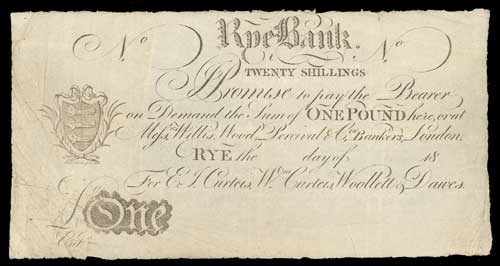 No Rye Bank. No
TWENTY SHILLINGS
I Promise to pay the Bearer
on Demand the Sum of ONE POUND here, or at
Messrs. Willis, Wood, Percival & Co. Bankers, London.
RYE the day of 18
For E. I. Curteis, Wm. Curteis, Woollett & Dawes.
£ One
Entd.